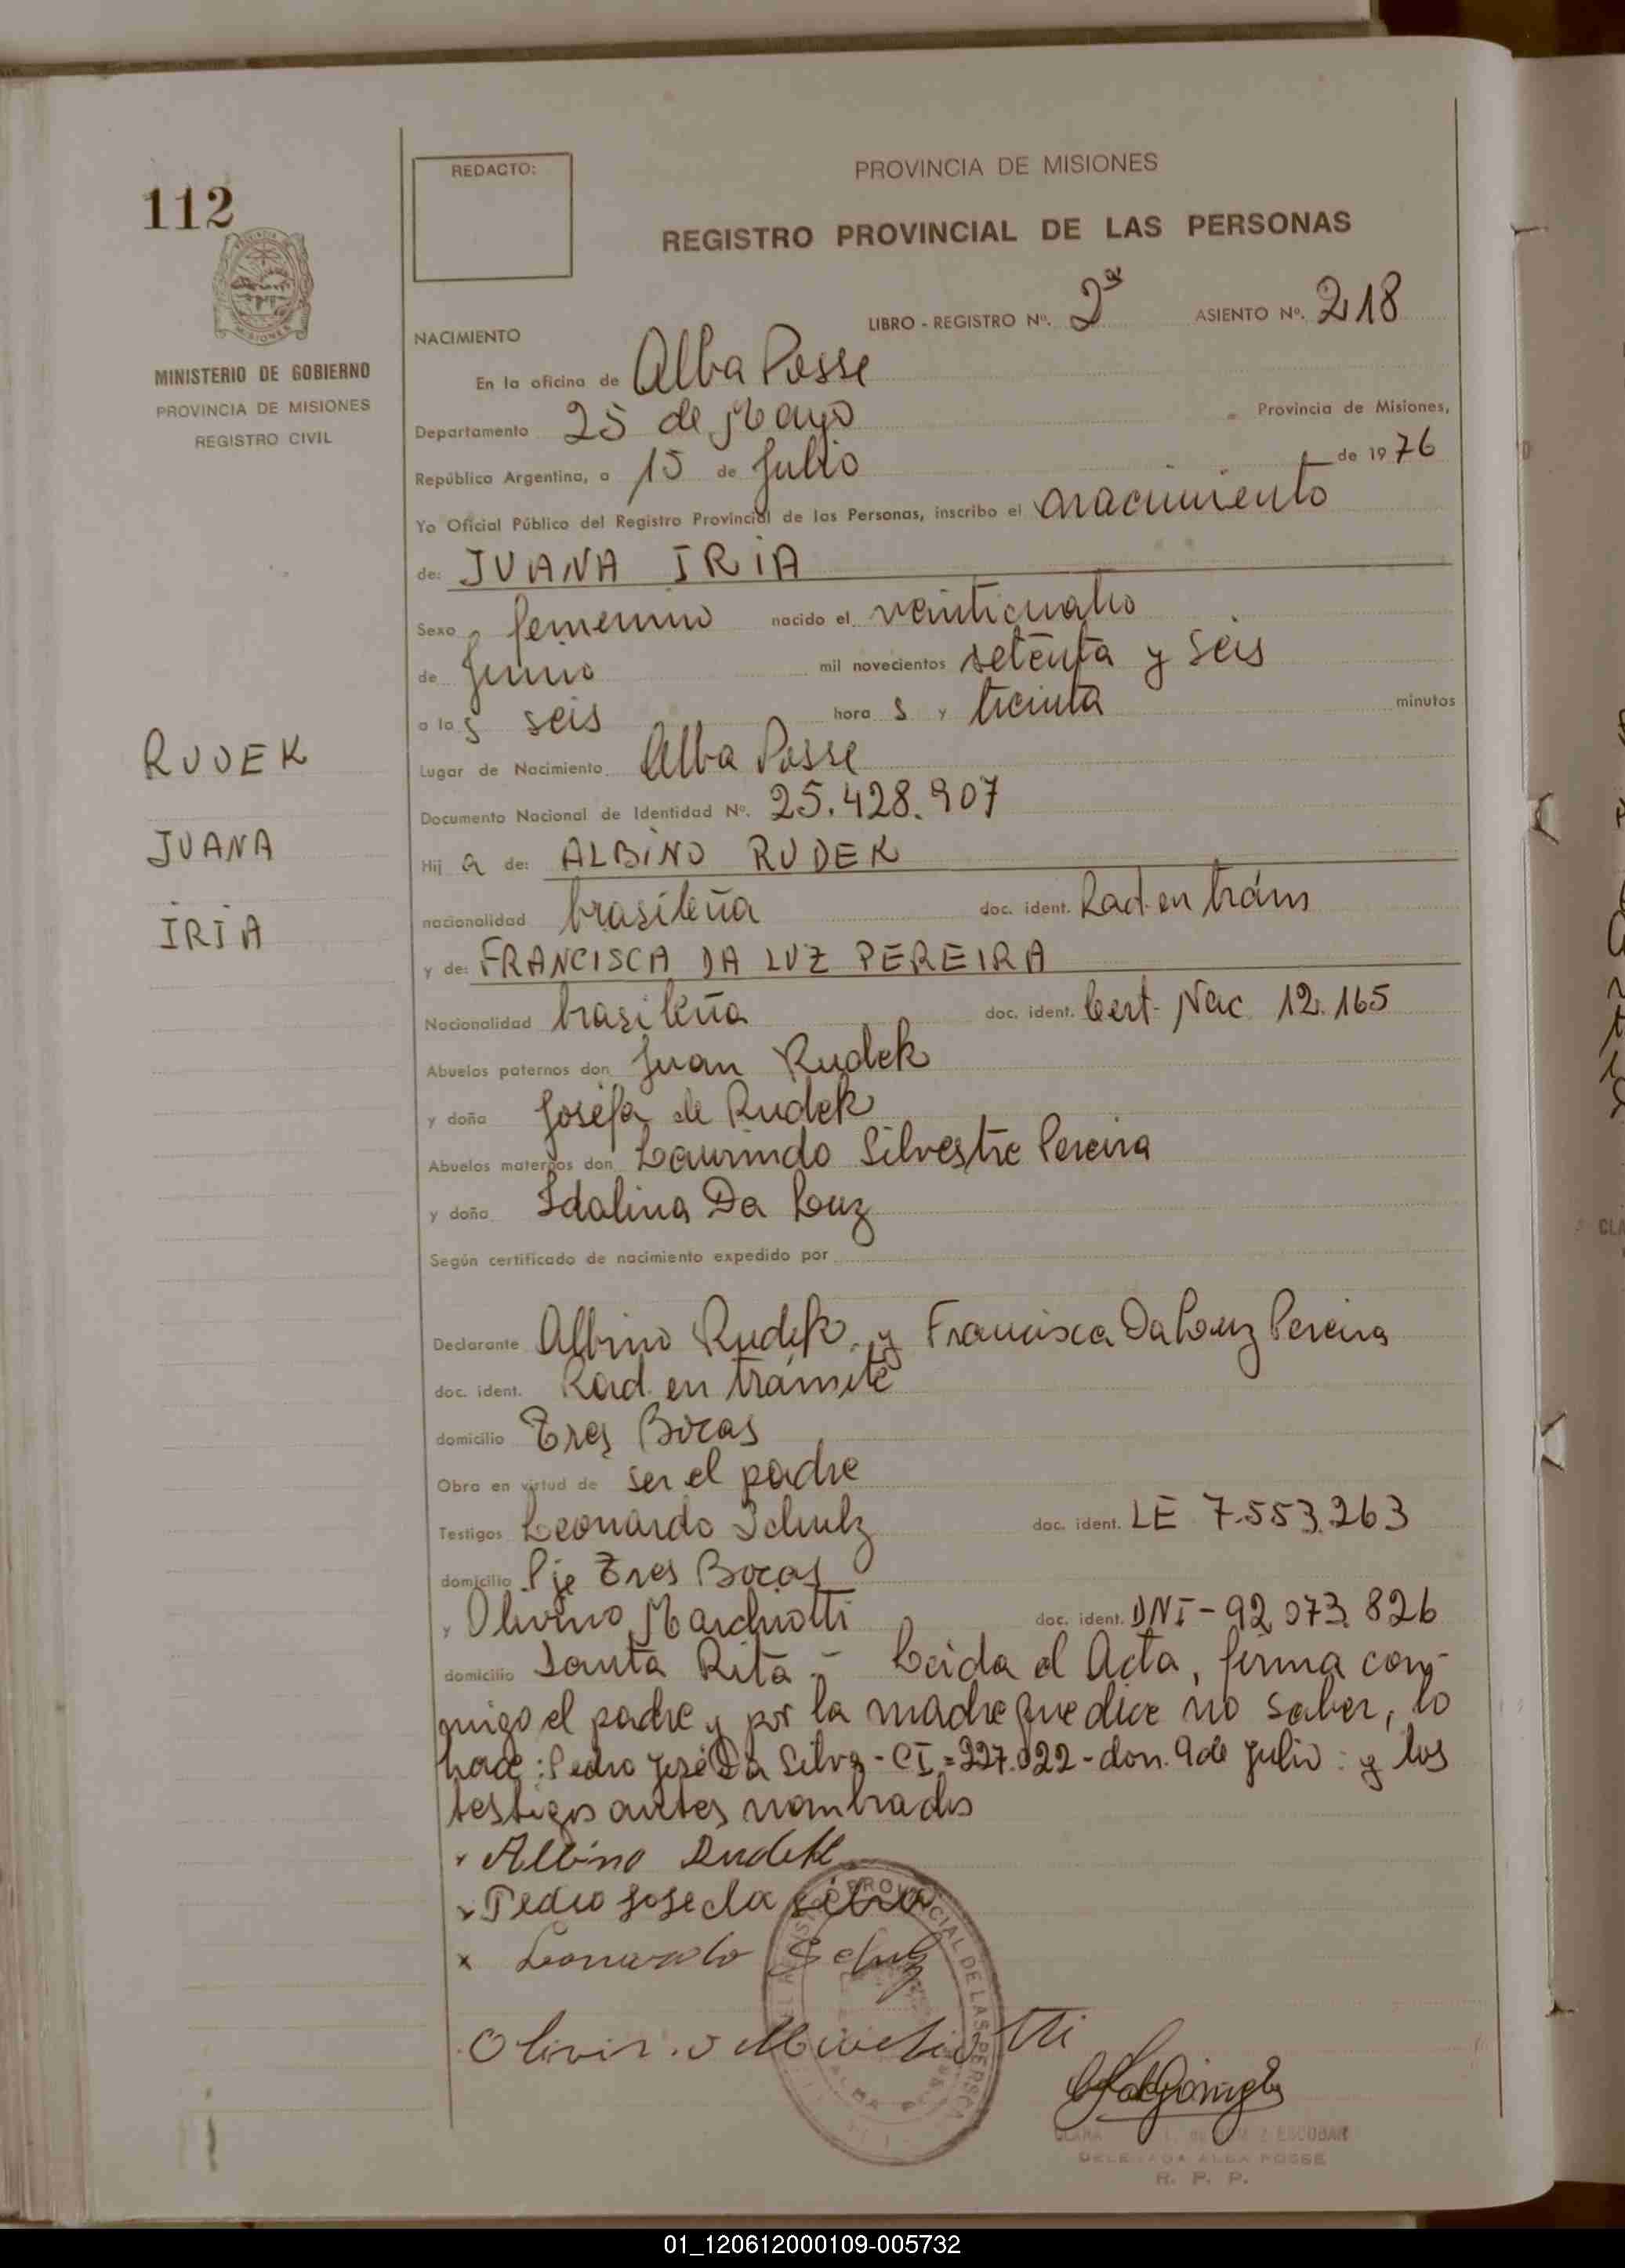 112
MINISTERIO DE GOBIERNO
PROVINCIA DE MISIONES
REGISTRO CIVIL
RUDEK
JUANA
IRIA
REDACTO:
PROVINCIA DE MISIONES
REGISTRO PROVINCIAL DE LAS PERSONAS
NACIMIENTO LIBRO - REGISTRO Nº. 2ª ASIENTO Nº. 218
En la oficina de Alba Posse
Departamento 25 de Mayo Provincia de Misiones,
República Argentina, a 15 de Julio de 1976
Yo Oficial Público del Registro Provincial de las Personas, inscribo el nacimiento
de: JUANA IRIA
Sexo femenino nacido el veinticuatro
de Junio mil novecientos setenta y seis
a la s seis hora s y treinta minutos
Lugar de Nacimiento Alba Posse
Documento Nacional de Identidad Nº. 25.428.907
Hij a de: ALBINO RUDEK
nacionalidad brasileña doc. ident. Rad. en trám
y de: FRANCISCA DA LUZ PEREIRA
Nacionalidad brasileña doc. ident. Cert. Nac 12.165
Abuelos paternos don Juan Rudek
y doña Josefa de Rudek
Abuelos maternos don Laurindo Silvestre Pereira
y doña Idalina Da Luz
Según certificado de nacimiento expedido por
Declarante Albino Rudek y Francisca Da Luz Pereira
doc. ident. Rad. en trámite
domicilio Tres Bocas
Obra en virtud de ser el padre
Testigos Leonardo Schulz doc. ident. LE 7.553.263
domicilio Pje Tres Bocas
y Olivino Marchiotti doc. ident. DNI - 92.073.826
domicilio Santa Rita - Leida el Acta, firma con-
migo el padre y por la madre que dice no saber, lo
hace: Pedro José Da Silva - CI = 227.022 - dom. 9 de Julio: y los
testigos antes nombrados
Albino Rudek
x Pedro Jose da Silva
x Leonardo Schulz
Olivino Marchiotti
PROVINCIAL DE LAS PERSONAS
CLARA ESCOBAR
DELEGADA ALBA POSSE
R. P. P.
01_120612000109-005732